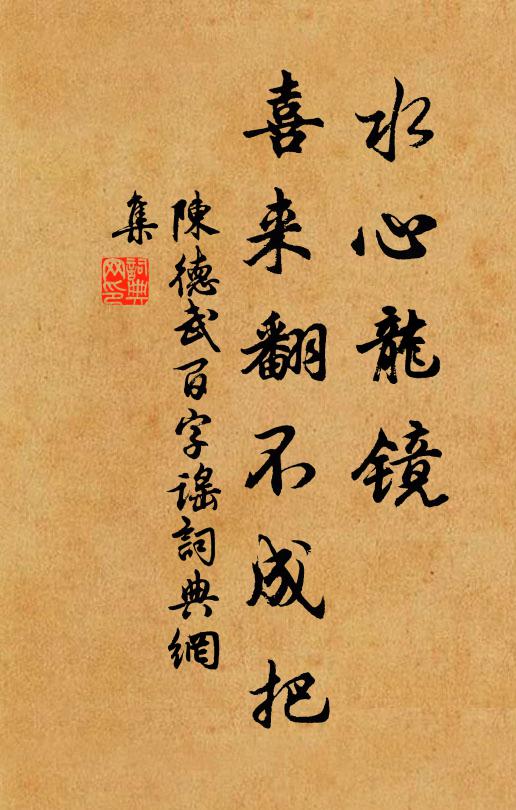 水心龍镜
喜来翻不成把
陳德武百字謠詞典網
集
詞典
网印